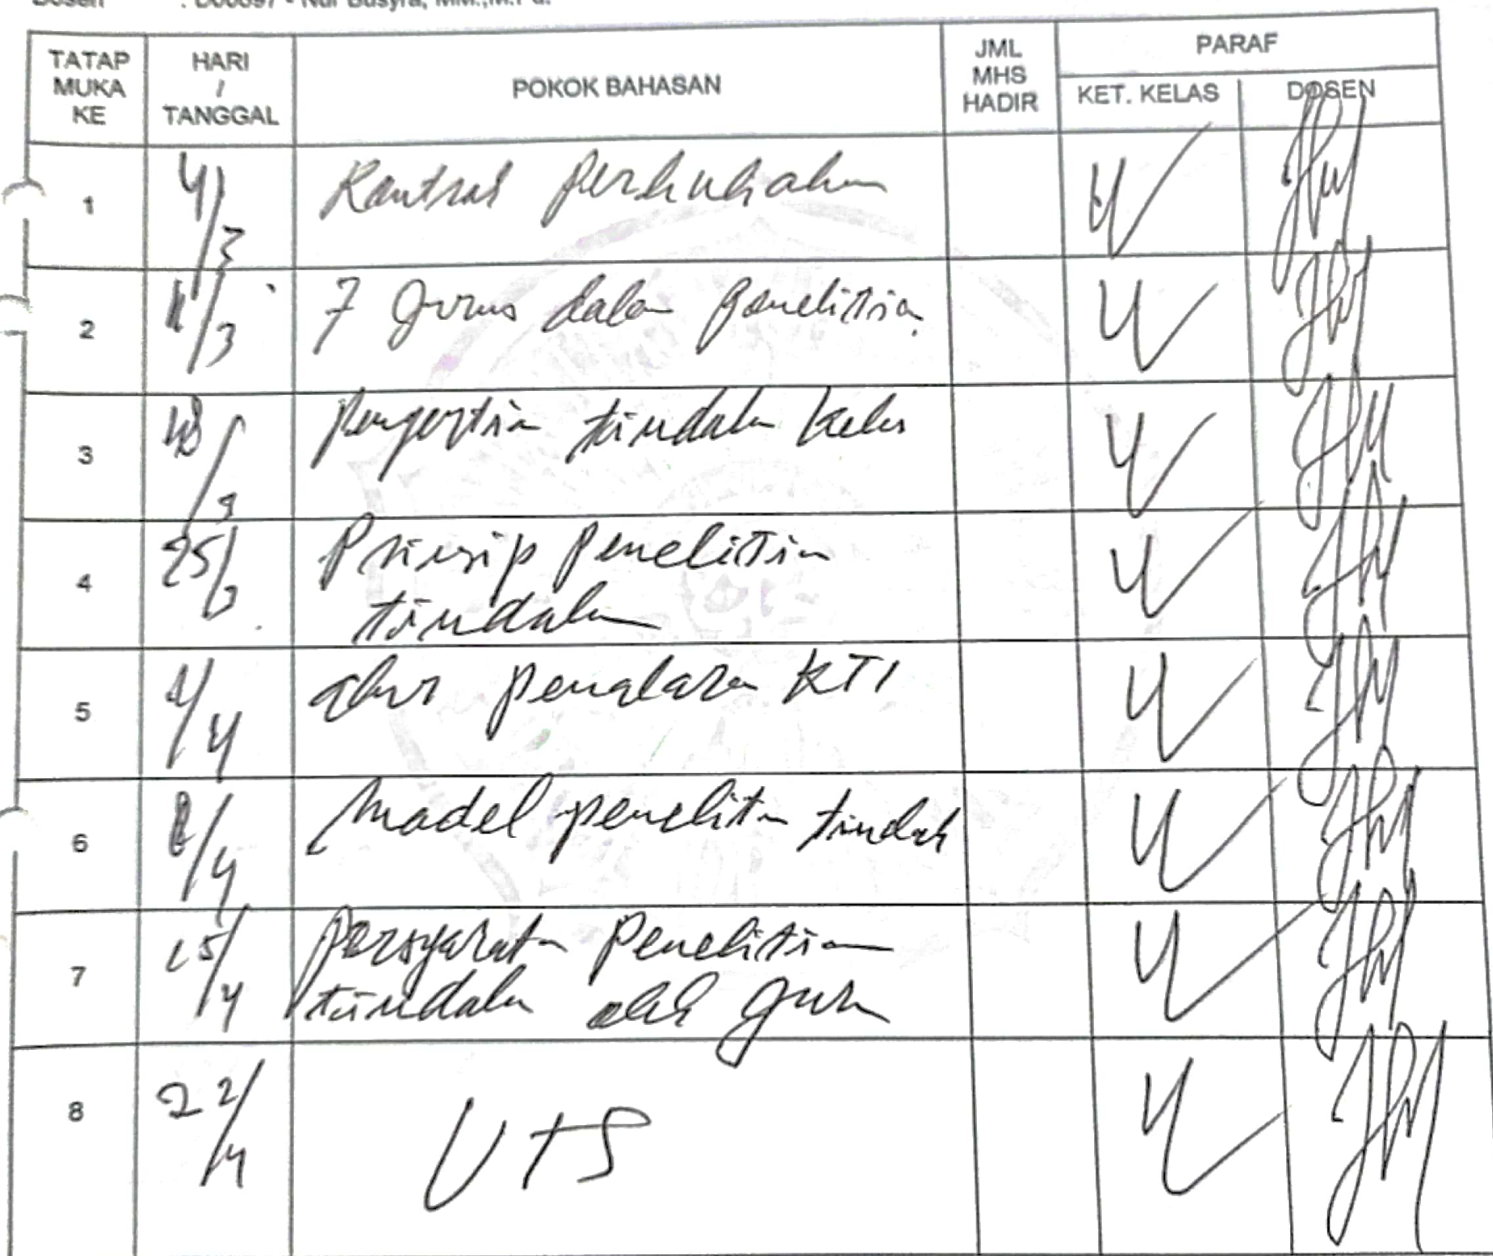 Dosen : D00897 - Nur Busyra, MM.,M.Pd.
TATAP MUKA KE
HARI / TANGGAL
POKOK BAHASAN
JML MHS HADIR
PARAF
KET. KELAS
DOSEN
1 4/3 Kontrak Perkuliahan
2 11/3 7 jurus dalam penelitian
3 18/3 pengertian tindakan kelas
4 25/3 Prinsip Penelitian
tindakan
5 1/4 alur penalaran KTI
6 8/4 Model penelitian tindak
7 15/4 persyaratan Penelitian
tindakan oleh guru
8 22/4 UTS